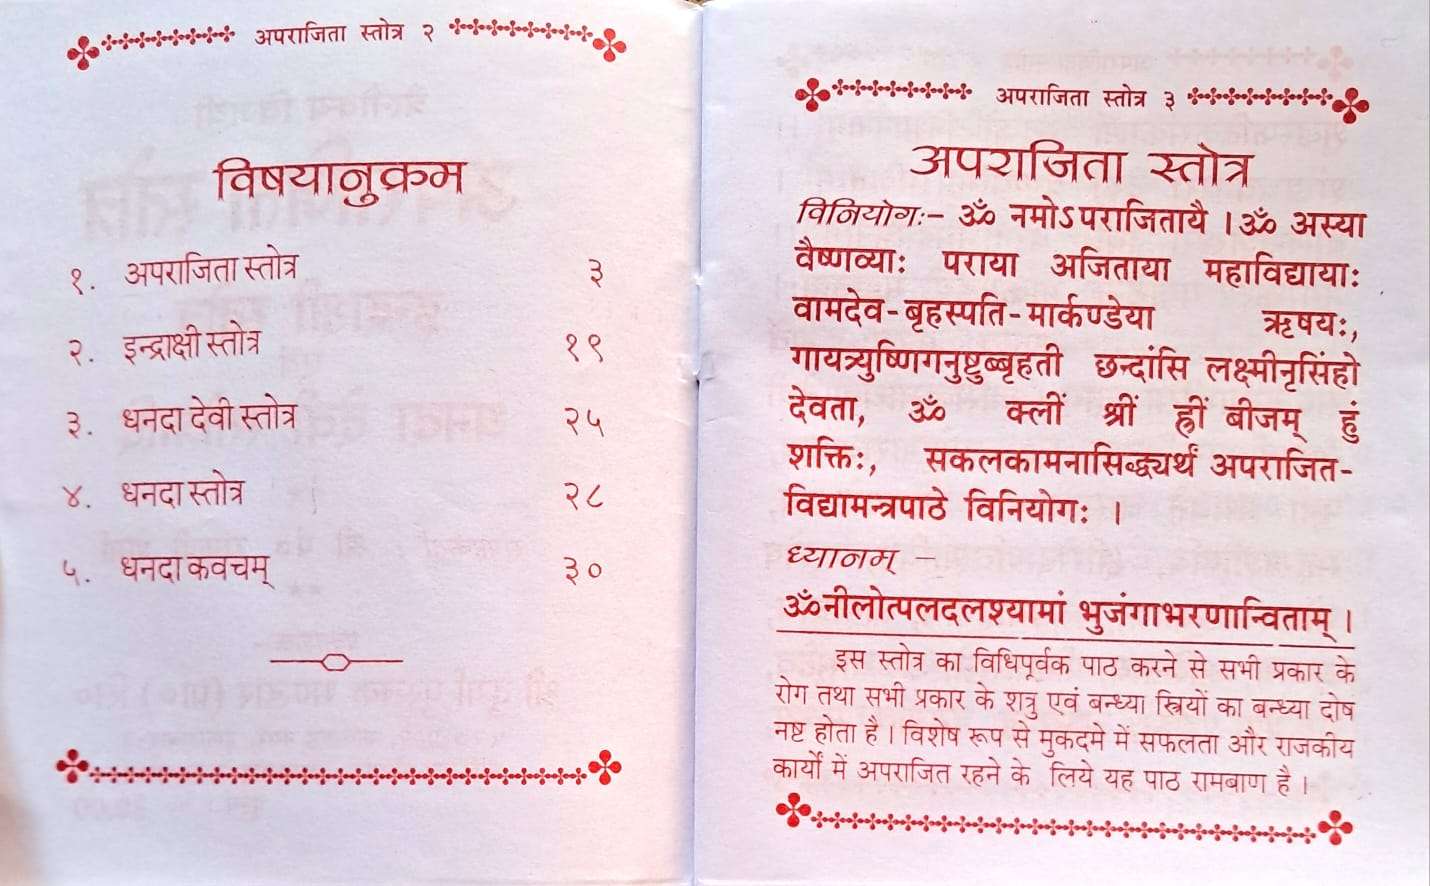 अपराजिता स्तोत्र २
विषयानुक्रम
१. अपराजिता स्तोत्र ३
२. इन्द्राक्षी स्तोत्र १९
३. धनदा देवी स्तोत्र २५
४. धनदा स्तोत्र २८
५. धनदा कवचम् ३०
अपराजिता स्तोत्र ३
अपराजिता स्तोत्र
विनियोगः- ॐ नमोऽपराजितायै । ॐ अस्या
वैष्णव्याः पराया अजिताया महाविद्यायाः
वामदेव-बृहस्पति-मार्कण्डेया ऋषयः,
गायत्र्युष्णिगनुष्टुब्बृहती छन्दांसि लक्ष्मीनृसिंहो
देवता, ॐ क्लीं श्रीं ह्रीं बीजम् हुं
शक्तिः, सकलकामनासिद्ध्यर्थं अपराजित-
विद्यामन्त्रपाठे विनियोगः ।
ध्यानम् –
ॐनीलोत्पलदलश्यामां भुजंगाभरणान्विताम् ।
इस स्तोत्र का विधिपूर्वक पाठ करने से सभी प्रकार के
रोग तथा सभी प्रकार के शत्रु एवं बन्ध्या स्त्रियों का बन्ध्या दोष
नष्ट होता है । विशेष रूप से मुकदमे में सफलता और राजकीय
कार्यों में अपराजित रहने के लिये यह पाठ रामबाण है ।